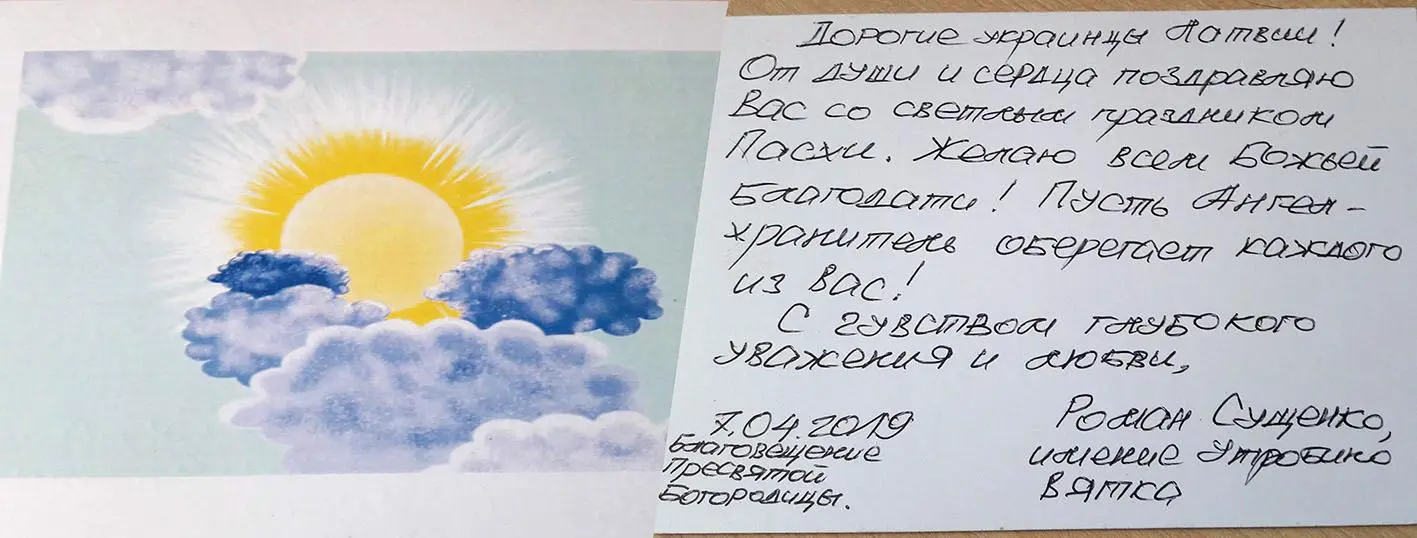 Дорогие украинцы Латвии!
От души и сердца поздравляю
Вас со светлым праздником
Пасхи. Желаю всем Божьей
Благодати! Пусть Ангел-
хранитель оберегает каждого
из вас!
С чувством глубокого
уважения и любви,
Роман Сущенко,
имение Утробино
Вятка
7.04.2019
Благовещение
Пресвятой
Богородицы.